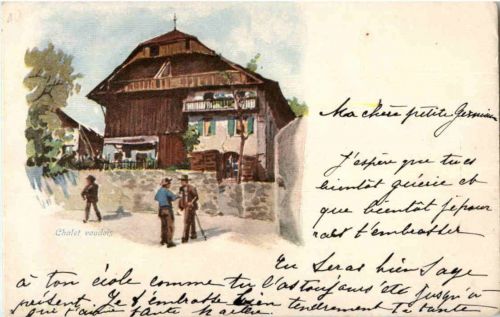 Chalet vaudois
Ma chère petite Germaine
J'espère que tu es
bientôt guérie et
que bientôt je pour
rais t'embrasser
Tu seras bien sage
à ton école comme tu l'as toujours été jusqu'à
présent. Je t'embrasse bien tendrement Ta tante
que t'aime